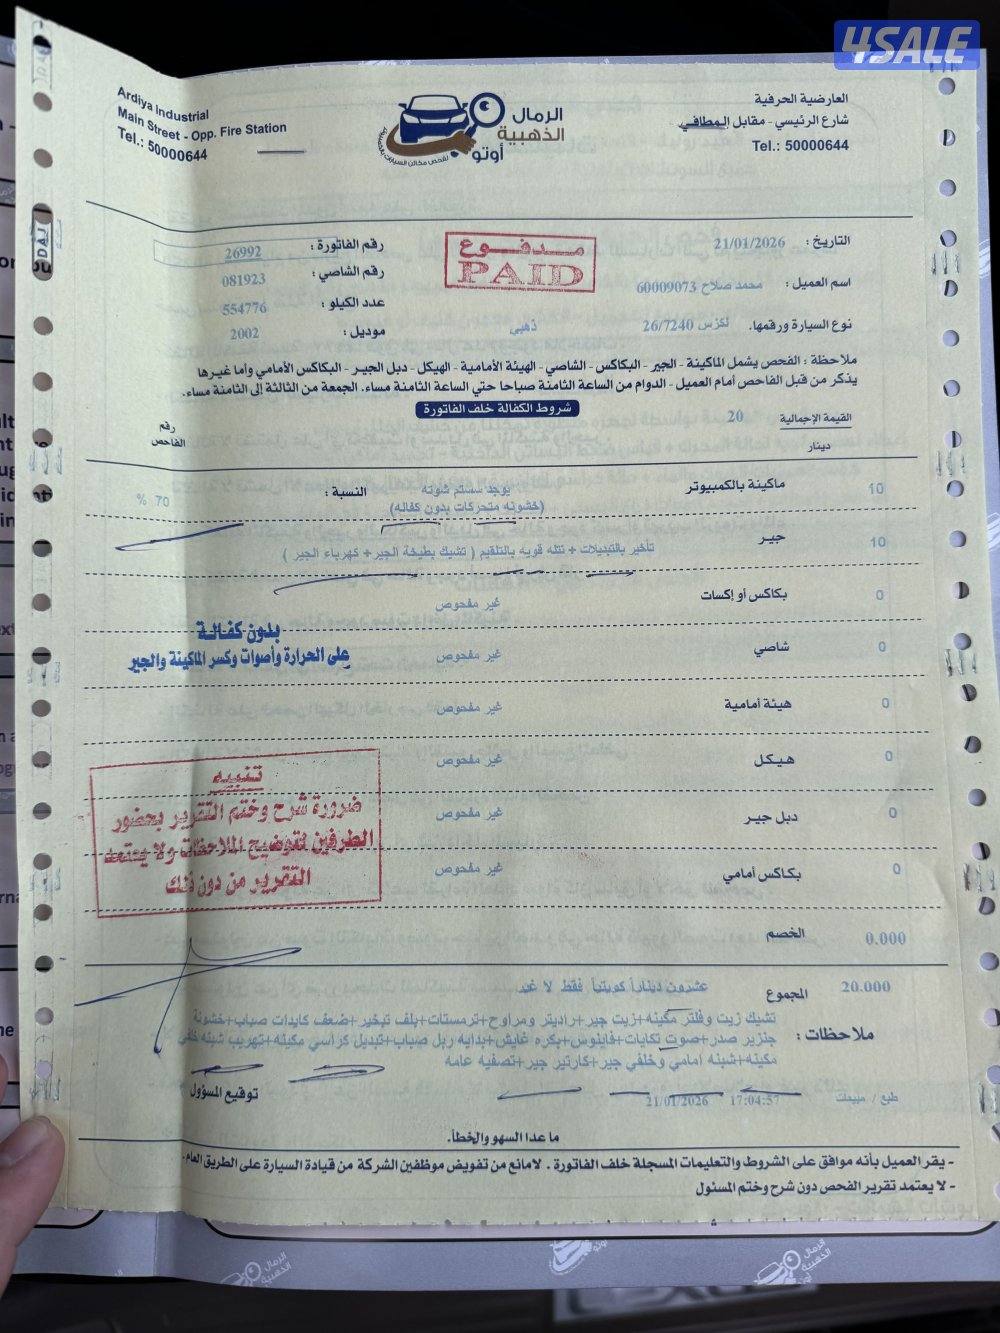 4SALE
Ardiya Industrial
Main Street - Opp. Fire Station
Tel.: 50000644
الرمال
الذهبية
أوتو
لفحص مكائن السيارات بالكمبيوتر
العارضية الحرفية
شارع الرئيسي - مقابل المطافي
Tel.: 50000644
التاريخ : 21/01/2026
مدفوع
PAID
رقم الفاتورة : 26992
اسم العميل : محمد صلاح 60009073
رقم الشاصي : 081923
عدد الكيلو : 554776
نوع السيارة ورقمها. لكزس 26/7240 ذهبي
موديل : 2002
ملاحظة : الفحص يشمل الماكينة - الجير - البكاكس - الشاصي - الهيئة الأمامية - الهيكل - دبل الجير - البكاكس الأمامي وأما غيرها
يذكر من قبل الفاحص أمام العميل - الدوام من الساعة الثامنة صباحا حتي الساعة الثامنة مساء. الجمعة من الثالثة إلى الثامنة مساء.
شروط الكفالة خلف الفاتورة
القيمة الإجمالية 20
دينار
رقم
الفاحص
10 ماكينة بالكمبيوتر يوجد سستم شونه النسبة : 70 %
(خشونه متحركات بدون كفاله)
10 جير تأخير بالتبديلات + نتله قويه بالتلقيم ( تشيك بطيخة الجير + كهرباء الجير )
0 بكاكس أو إكسات غير مفحوص
بدون كفالة
على الحرارة وأصوات وكسر الماكينة والجير
0 شاصي غير مفحوص
0 هيئة أمامية غير مفحوص
0 هيكل غير مفحوص
0 دبل جير غير مفحوص
0 بكاكس أمامي غير مفحوص
تنبيه
ضرورة شرح وختم التقرير بحضور
الطرفين لتوضيح الملاحظات ولا يعتمد
التقرير من دون ذلك
0.000 الخصم
20.000 المجموع عشرون ديناراً كويتياً فقط لا غير
ملاحظات : تشيك زيت وفلتر مكينه+زيت جير+راديتر ومراوح+ترمستات+بلف تبخير+ضعف كايدات صباب+خشونة
جنزير صدر+صوت تكايات+فاينوس+بكره غايش+بدايه ربل صباب+تبديل كراسي مكينه+تهريب شبنه خلفي
مكينه+شبنه امامي وخلفي جير+كارتير جير+تصفيه عامه
توقيع المسؤول
طبع / مبيعات 17:04:57 21/01/2026
ما عدا السهو والخطأ.
- يقر العميل بأنه موافق على الشروط والتعليمات المسجلة خلف الفاتورة . لامانع من تفويض موظفين الشركة من قيادة السيارة على الطريق العام.
- لا يعتمد تقرير الفحص دون شرح وختم المسئول
الرمال
الذهبية
أوتو